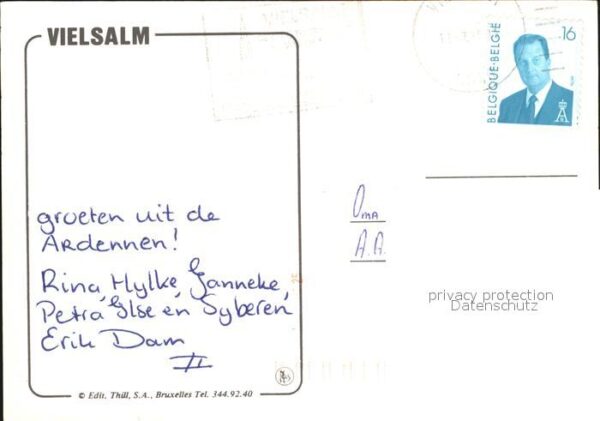 VIELSALM
BELGIQUE-BELGIË
16
groeten uit de
Ardennen!
Rina, Hylke, Janneke,
Petra, Ilse en Syberen
Erik Dam
II
Oma
A.A.
privacy protection
Datenschutz
© Edit. Thill, S.A., Bruxelles Tel. 344.92.40